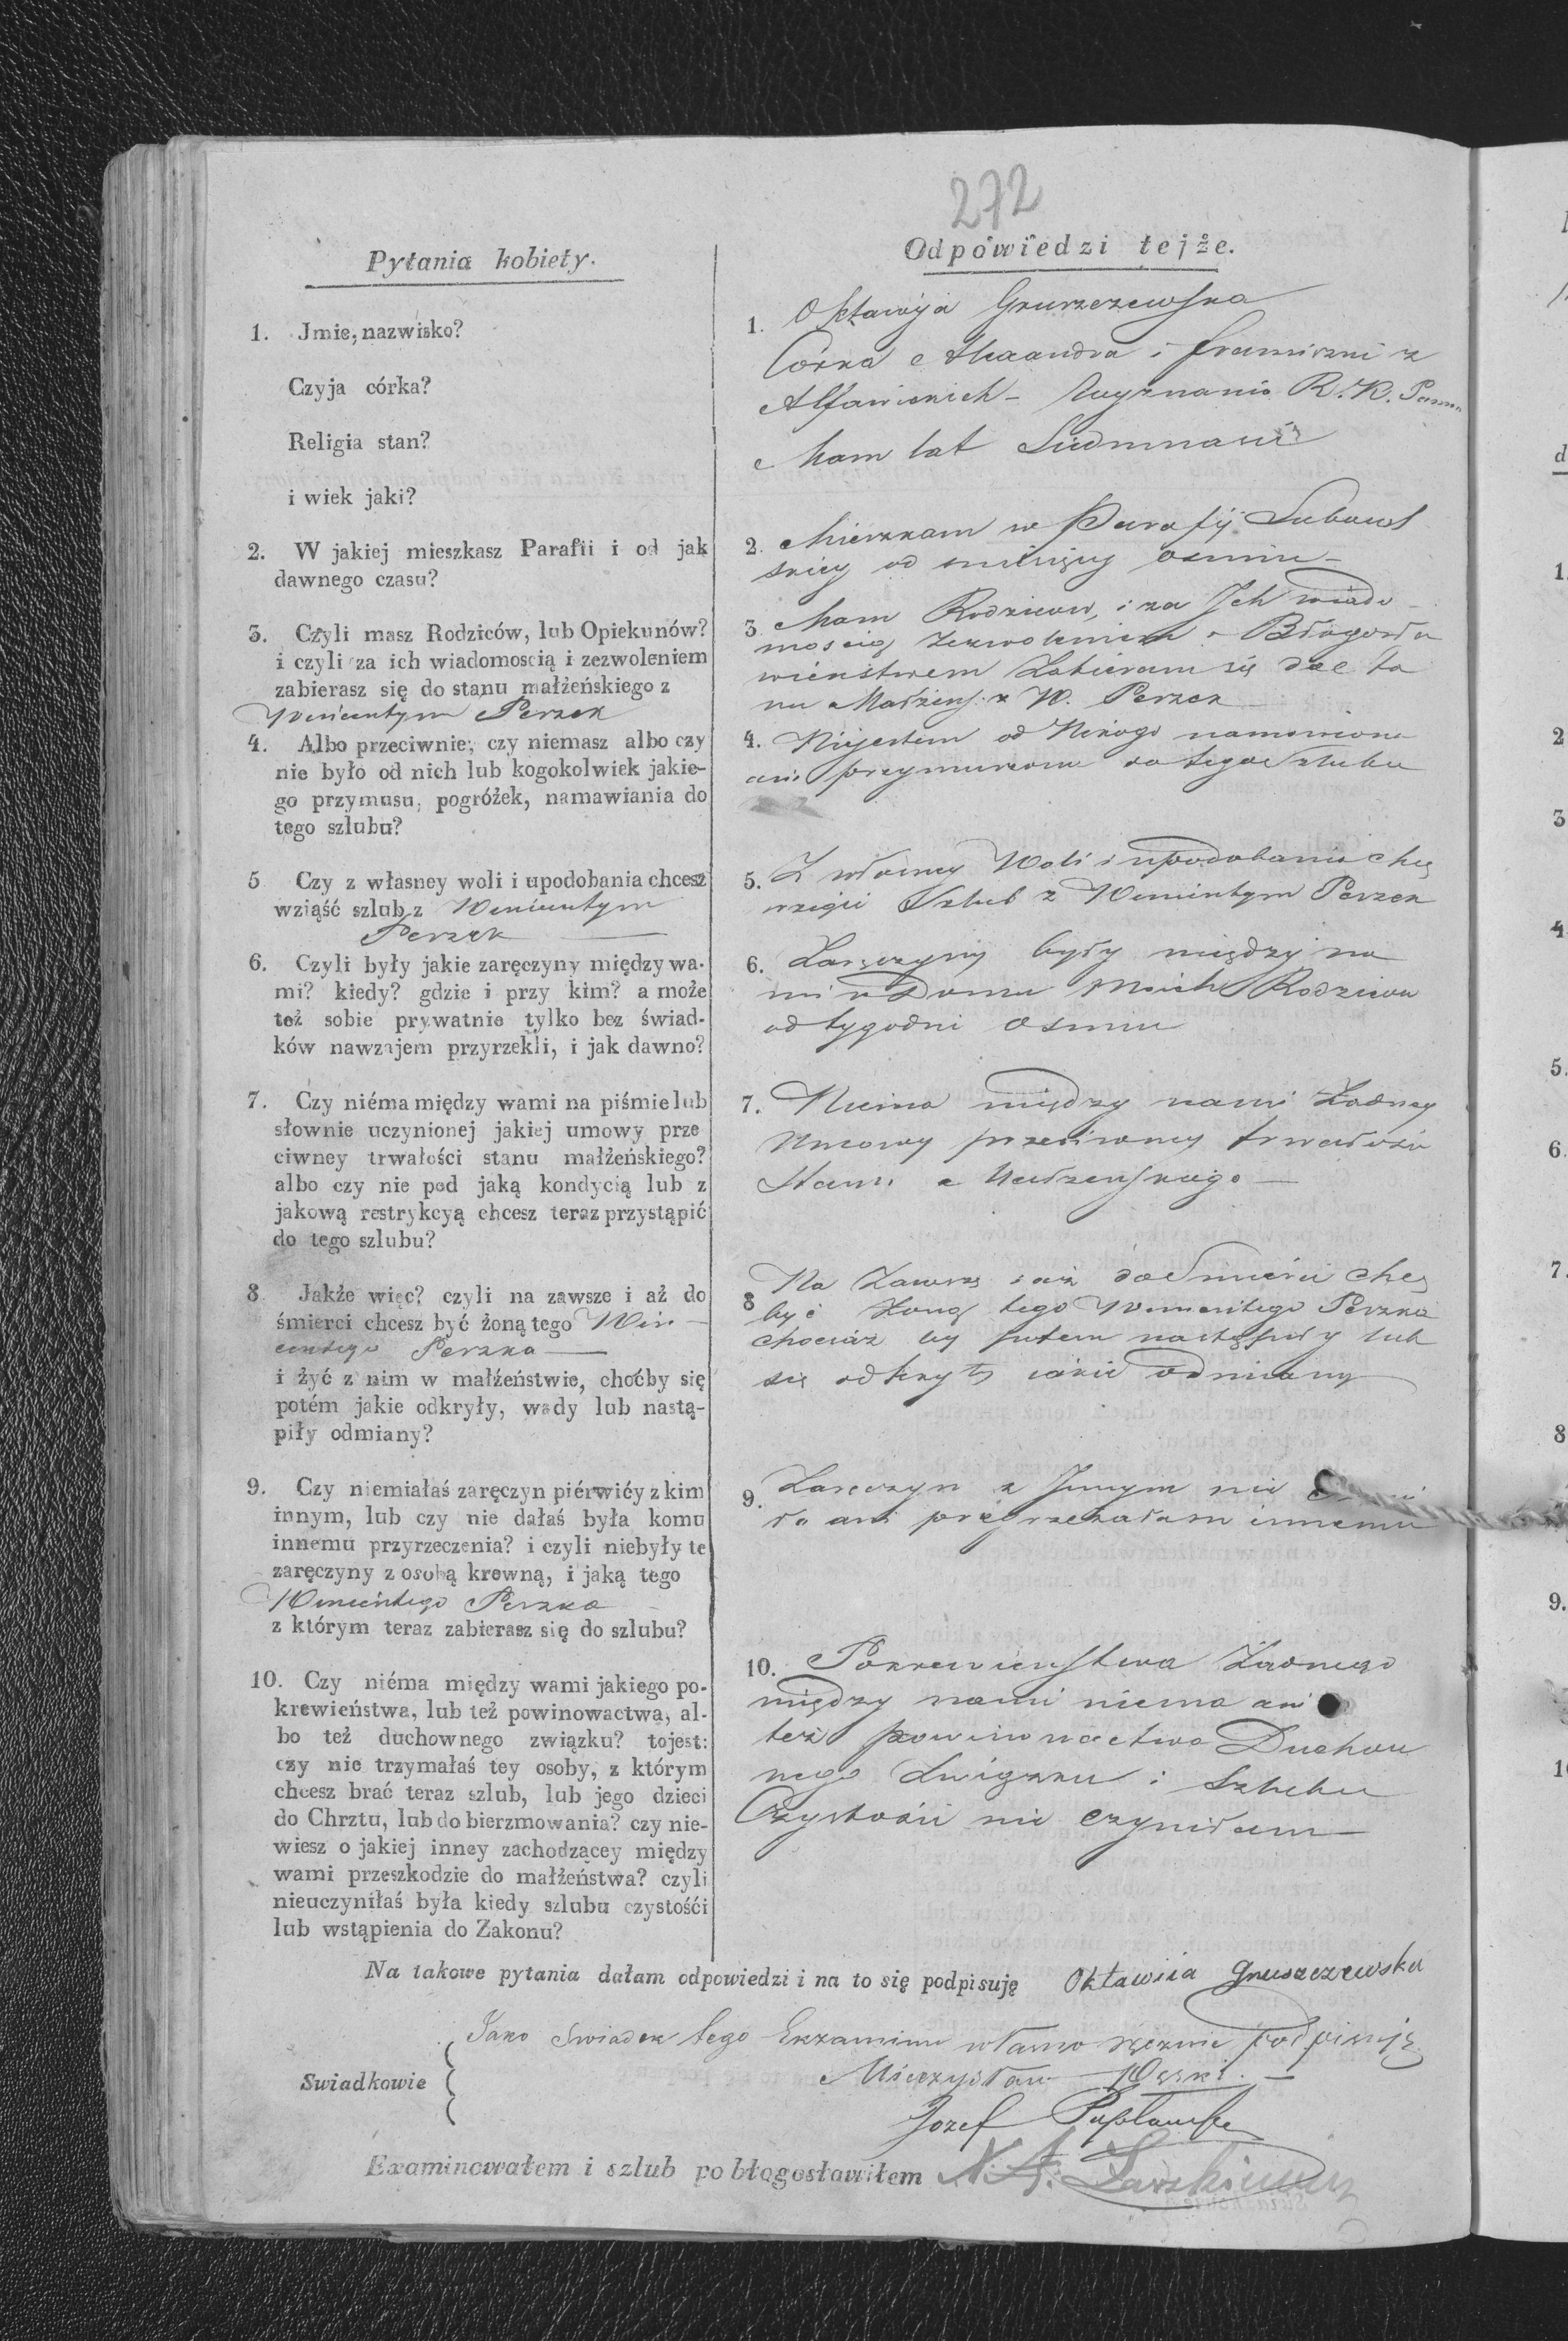 272
Pytania kobiety.
Odpowiedzi tejże.
1. Jmie, nazwisko?
Czyja córka?
Religia stan?
i wiek jaki?
1. Oktawija Gruszczewska
Córka Alexandra i z
Wyznania R. K.
Mam lat
2. W jakiej mieszkasz Parafii i od jak
dawnego czasu?
2. Mieszkam w Parafij
od
3. Czyli masz Rodziców, lub Opiekunów?
i czyli za ich wiadomością i zezwoleniem
zabierasz się do stanu małżeńskiego z
Wincentym Perzek
3. Mam Rodziców, i za Jch wiado-
mością zezwoleniem i Błogosła
wieństwem Zabieram się do Sta
nu Małżeńs. z W. Perzek
4. Albo przeciwnie, czy niemasz albo czy
nie było od nich lub kogokolwiek jakie-
go przymusu, pogróżek, namawiania do
tego szlubu?
4. Niejestem od Nikogo namowiona
ani przymuszona do tego Szlubu
5 Czy z własney woli i upodobania chcesz
wziąść szlub z Wincentym
Perzek
5. Z własney Woli i upodobania chcę
wziąść Szlub z Wincentym Perzek
6. Czyli były jakie zaręczyny między wa-
mi? kiedy? gdzie i przy kim? a może
też sobie prywatnie tylko bez świad-
ków nawzajem przyrzekli, i jak dawno?
6. Zaręczyny były między na
mi w Domu Moich Rodziców
od tygodni osmiu
7. Czy niéma między wami na piśmie lub
słownie uczynionej jakiej umowy prze
ciwney trwałości stanu małżeńskiego?
albo czy nie pod jaką kondycią lub z
jakową restrykcyą chcesz teraz przystąpić
do tego szlubu?
7. Niema między nami Żadney
Umowy przeciwney trwałości
Stanu Małżeńskiego
8 Jakże więc? czyli na zawsze i aż do
śmierci chcesz być żoną tego Win-
centego Perzka
i żyć z nim w małżeństwie, choćby się
potém jakie odkryły, wady lub nastą-
piły odmiany?
8 Na Zawsze i aż do Smierci chcę
być Żoną tego Wincentego Perzka
chociaż by potem nastąpiły lub
się odkryły jakie odmiany
9. Czy niemiałaś zaręczyn piérwićy z kim
innym, lub czy nie dałaś była komu
innemu przyrzeczenia? i czyli niebyły te
zaręczyny z osobą krewną, i jaką tego
Wincentego Perzka
z którym teraz zabierasz się do szlubu?
9. Zaręczyn z Jnnym nie
ła ani przyrzekałam innemu
10. Czy niéma między wami jakiego po-
krewieństwa, lub też powinowactwa, al-
bo też duchownego związku? tojest:
czy nie trzymałaś tey osoby, z którym
chcesz brać teraz szlub, lub jego dzieci
do Chrztu, lub do bierzmowania? czy nie-
wiesz o jakiej inney zachodzącey między
wami przeszkodzie do małżeństwa? czyli
nieuczyniłaś była kiedy szlubu czystośći
lub wstąpienia do Zakonu?
10. Pokrewieństwa Żadnego
między nami niema ani
też powinowactwa Duchow
nego Związku i Szlubu
Czystości nie czyniłam
Na takowe pytania dałam odpowiedzi i na to się podpisuję Oktawiia Gruszczewska
Swiadkowie
Jako Swiadek tego Exzaminu własno ręcznie podpisuję
Mieczysław
Jozef
Examinowałem i szlub pobłogosławiłem